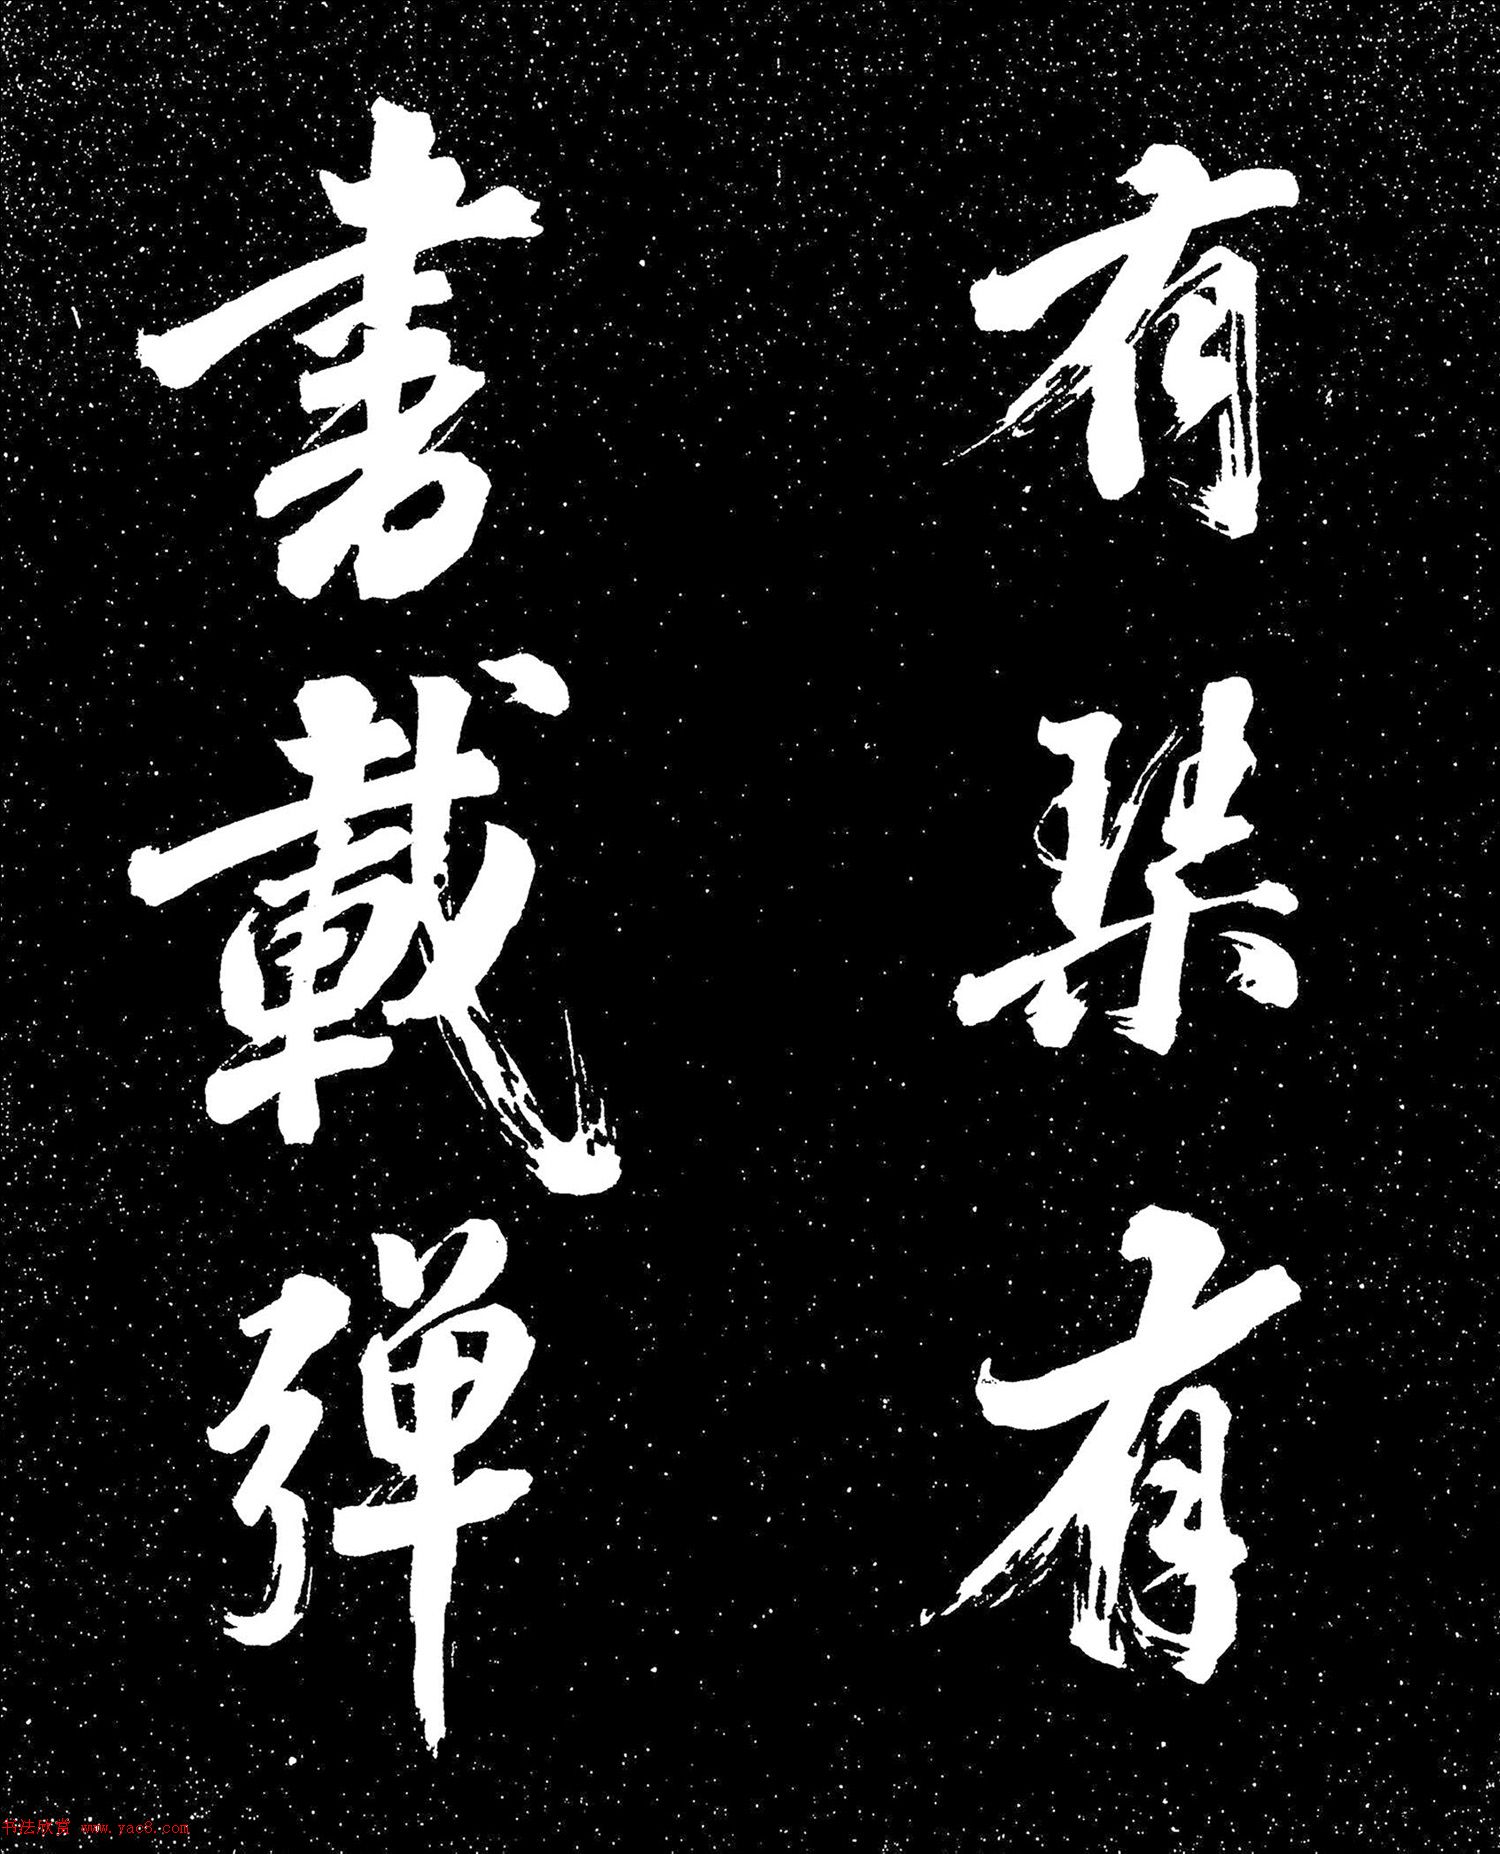 有琴有
書載弹
书法欣赏 www.yac8.com